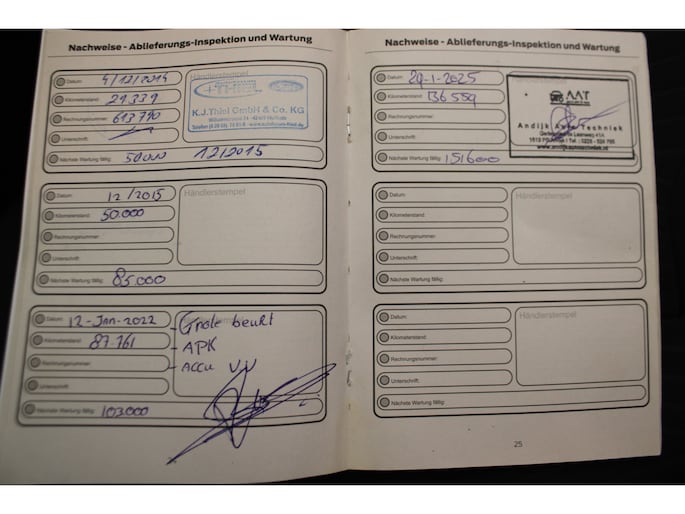 Nachweise - Ablieferungs-Inspektion und Wartung
Datum: 4/12/2014
Händlerstempel
Kilometerstand: 21339
Rechnungsnummer: 613790
Unterschrift:
K.J.Thiel GmbH & Co. KG
Nächste Wartung fällig: 50000 12/2015
Datum: 12/2015
Händlerstempel
Kilometerstand: 50.000
Rechnungsnummer:
Unterschrift:
Nächste Wartung fällig: 85.000
Datum: 12-Jan-2022
- Grote beurt
Kilometerstand: 87.761
- APK
Rechnungsnummer:
- Accu VV
Unterschrift:
Nächste Wartung fällig: 103.000
Nachweise - Ablieferungs-Inspektion und Wartung
Datum: 20-1-2025
Kilometerstand: 136559
AAT
Rechnungsnummer:
Andijk Auto Techniek
Unterschrift:
www.andijkautotechniek.nl
Nächste Wartung fällig: 151600
Datum:
Händlerstempel
Kilometerstand:
Rechnungsnummer:
Unterschrift:
Nächste Wartung fällig:
Datum:
Händlerstempel
Kilometerstand:
Rechnungsnummer:
Unterschrift:
Nächste Wartung fällig:
25